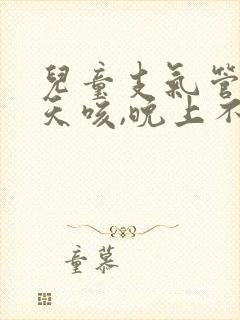 兒童支氣管
天咳,晚上不
童慕